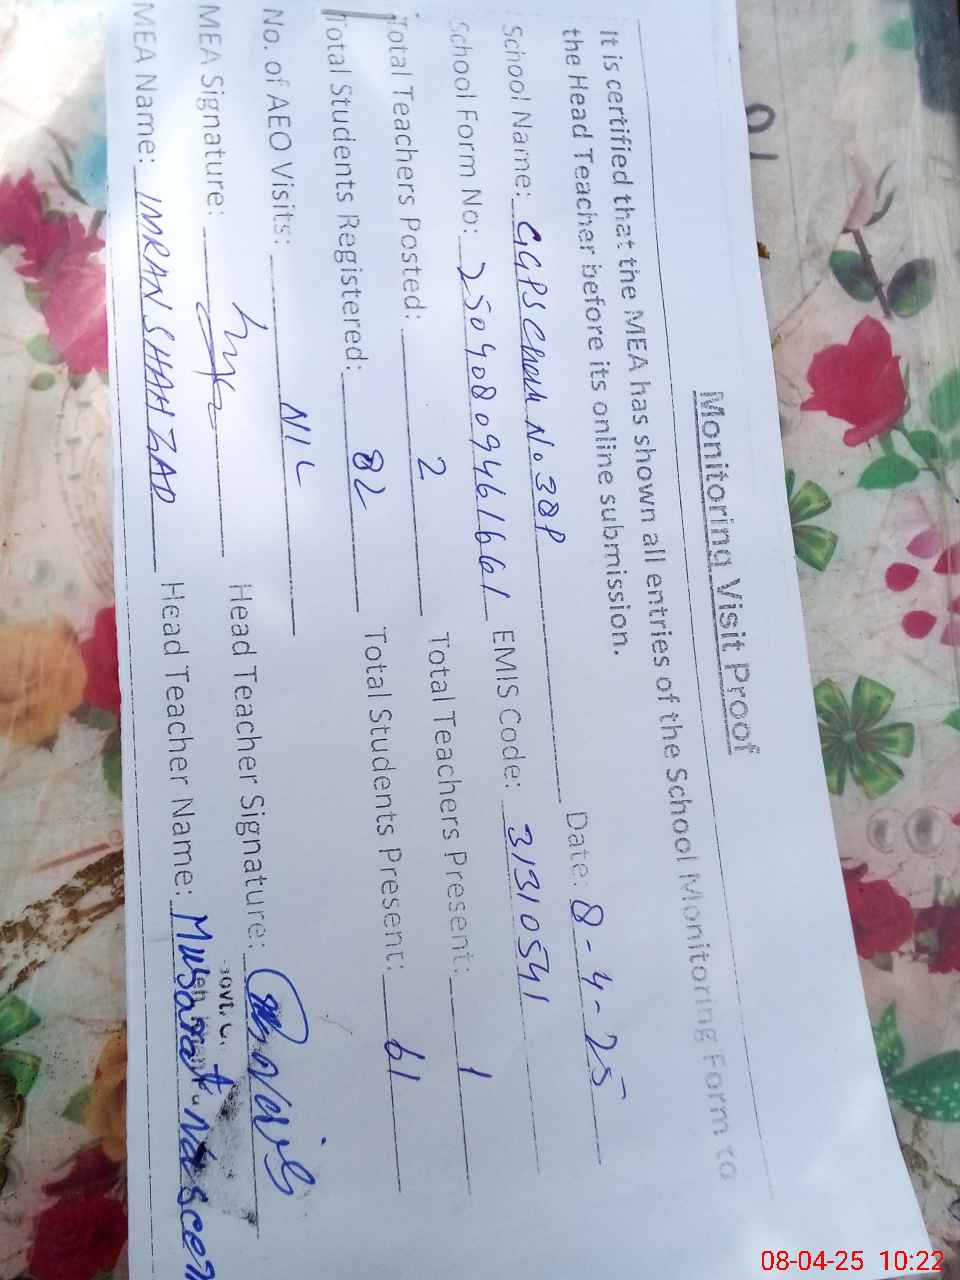 Monitoring Visit Proof
It is certified that the MEA has shown all entries of the School Monitoring Form to
the Head Teacher before its online submission.
School Name: GGPS Chak No. 38P Date: 8-4-25
School Form No: 250408094616661 EMIS Code: 31310541
Total Teachers Posted: 2 Total Teachers Present: 1
Total Students Registered: 82 Total Students Present: 61
No. of AEO Visits: NIL
MEA Signature: Head Teacher Signature:
MEA Name: IMRAN SHAHZAD Head Teacher Name: Musarat
08-04-25 10:22